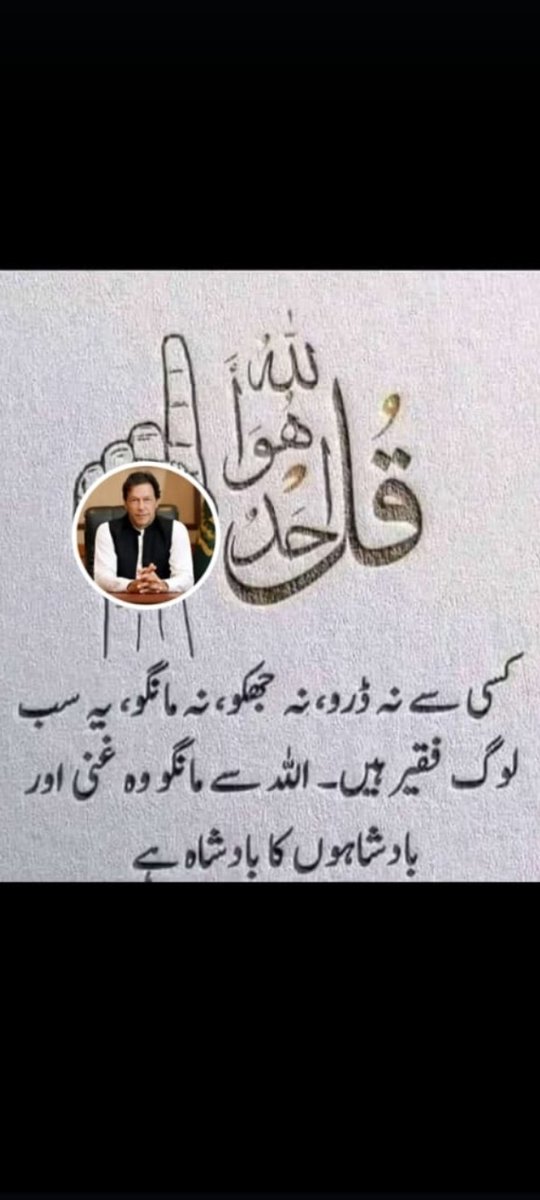 قُلْ هُوَ اللّٰهُ أَحَدٌ
کسی سے نہ ڈرو، نہ جھکو، نہ مانگو، یہ سب
لوگ فقیر ہیں۔ اللہ سے مانگو وہ غنی اور
بادشاہوں کا بادشاہ ہے